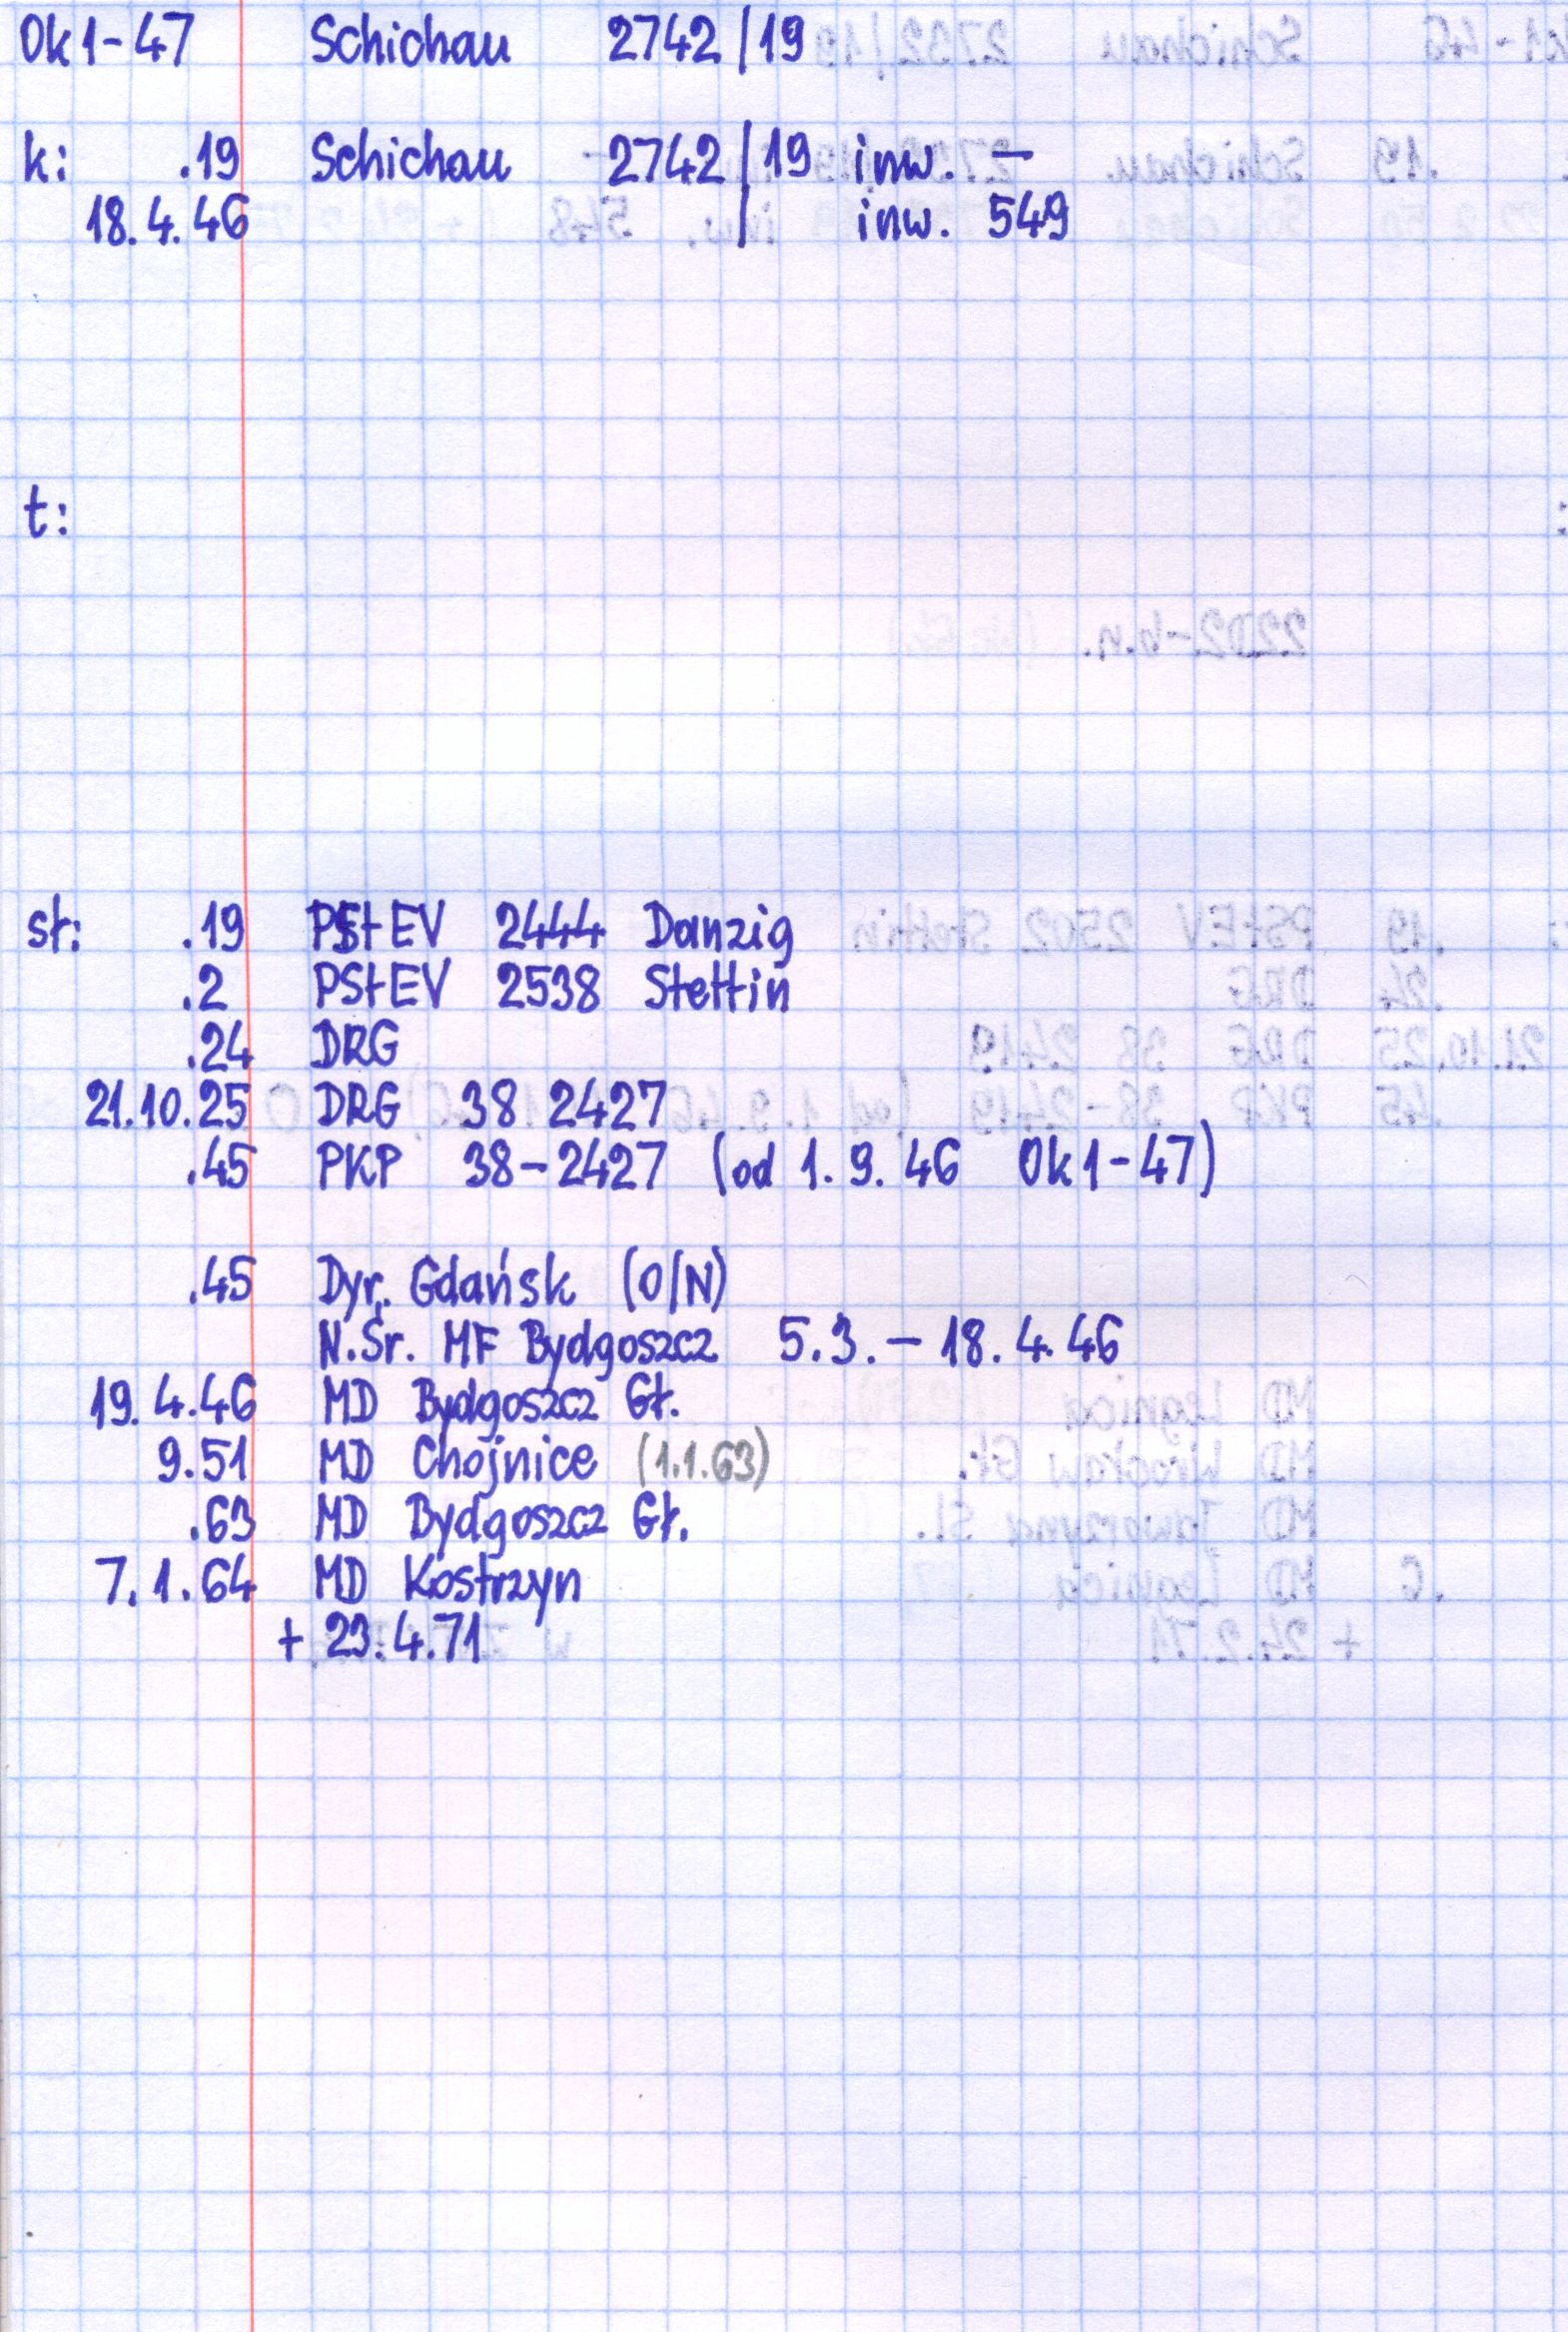 Ok1-47 Schichau 2742/19
k: .19 Schichau 2742/19 inw. –
18.4.46 / inw. 549
t:
sł: .19 PStEV 2444 Danzig
.2 PStEV 2538 Stettin
.24 DRG
21.10.25 DRG 38 2427
.45 PKP 38-2427 (od 1.9.46 Ok1-47)
.45 Dyr. Gdańsk (O/N)
N.Śr. MF Bydgoszcz 5.3. – 18.4.46
19.4.46 MD Bydgoszcz Gł.
9.51 MD Chojnice (1.1.63)
.63 MD Bydgoszcz Gł.
7.1.64 MD Kostrzyn
+ 23.4.71